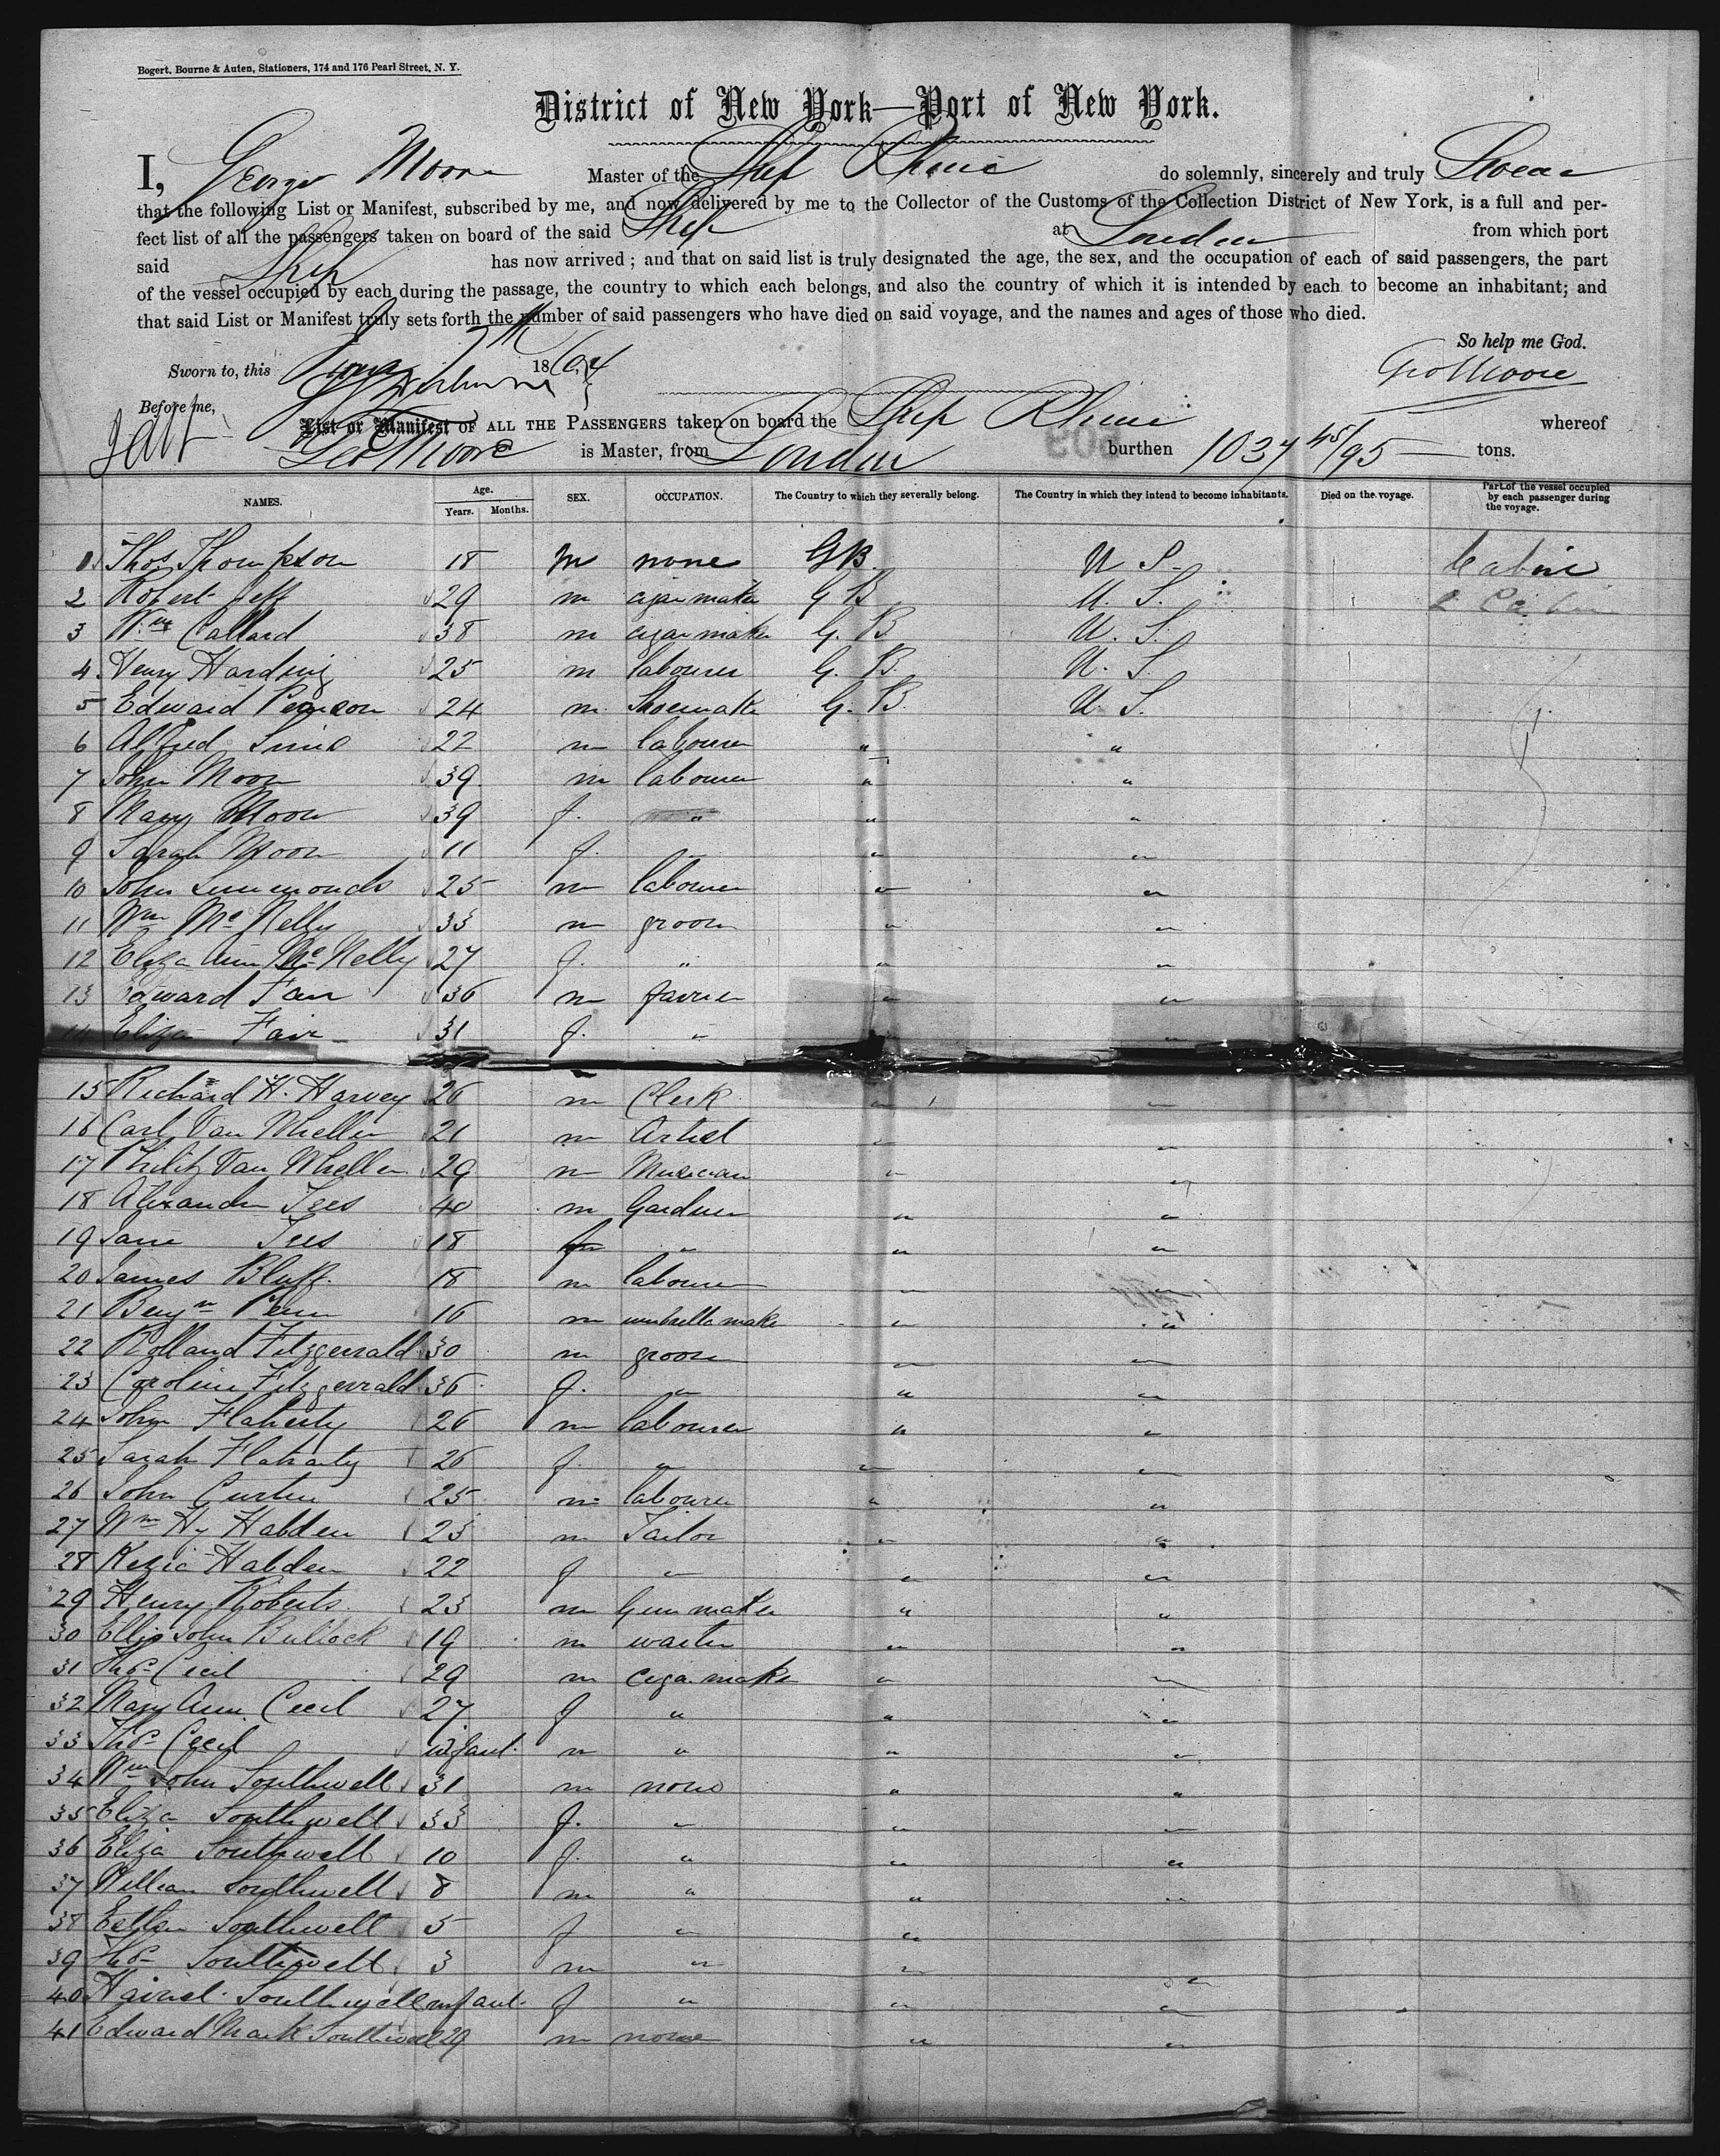 Bogert, Bourne & Auten, Stationers, 174 and 176 Pearl Street, N. Y.
District of New York—Port of New York.
I, George Moore Master of the Ship Rhine do solemnly, sincerely and truly Swear
that the following List or Manifest, subscribed by me, and now delivered by me to the Collector of the Customs of the Collection District of New York, is a full and per-
fect list of all the passengers taken on board of the said Ship at London from which port
said Ship has now arrived; and that on said list is truly designated the age, the sex, and the occupation of each of said passengers, the part
of the vessel occupied by each during the passage, the country to which each belongs, and also the country of which it is intended by each to become an inhabitant; and
that said List or Manifest truly sets forth the number of said passengers who have died on said voyage, and the names and ages of those who died.
So help me God.
Sworn to, this 1864 Geo Moore
Before me,
List or Manifest OF ALL THE PASSENGERS taken on board the Ship Rhine whereof
Geo Moore is Master, from London burthen 1037 45/95 tons.
NAMES. Age. Years. Months. SEX. OCCUPATION. The Country to which they severally belong. The Country in which they intend to become inhabitants. Died on the voyage. Part of the vessel occupied by each passenger during the voyage.
1 Thos Thompson 18 m none GB. U S. Cabin
2 Robert Jeff 29 m cigar maker G B U. S.
3 Wm Callard 38 m cigar maker G. B U. S.
4 Henry Harding 25 m labourer G. B. U. S.
5 Edward Pearson 24 m. Shoemaker G. B. U. S.
6 Alfred Sims 22 m labourer " "
7 John Moon 39 m labourer " "
8 Mary Moon 39 f. " " "
9 Sarah Moon 11 f. " " "
10 John Simmonds 25 m labourer " "
11 Wm Mc Nelly 33 m groom " "
12 Eliza Ann Mc Nelly 27 f. " " "
13 Edward Fair 36 m farrier " "
14 Eliza Fair 31 f. " " "
15 Richard H. Harvey 26 m Clerk " "
16 Carl Van Mhellen 21 m Artist " "
17 Philip Van Mhellen 29 m Musician " "
18 Alexander Tees 40 m Gardner " "
19 Jane Tees 18 f " " "
20 James Bluff. 18 m labourer " "
21 Benjn Penn 16 m umbrella maker " "
22 Rolland Fitzgerrald 30 m groom " "
23 Caroline Fitzgerrald 36 f. " " "
24 John Flaherty 26 m labourer " "
25 Sarah Flaharty 26 f. " " "
26 John Curtin 25 m labourer " "
27 Wm Hy Habden 23 m Tailor " "
28 Kezia Habden 22 f " " "
29 Henry Roberts. 23 m Gun maker " "
30 Ellis John Bullock 19 m waiter " "
31 Thos Cecil 29 m cigar maker " "
32 Mary Ann Cecil 27 f " " "
33 Thos Cecil infant. m " " "
34 Wm John Southwell 31 m none " "
35 Eliza Southwell 33 f. " " "
36 Eliza Southwell 10 f. " " "
37 William Southwell 8 m " " "
38 Esther Southwell 5 f " " "
39 Thos Southwell 3 m " " "
40 Harriet Southwell infant. f " " "
41 Edward Mark Southwell 29 m none " "